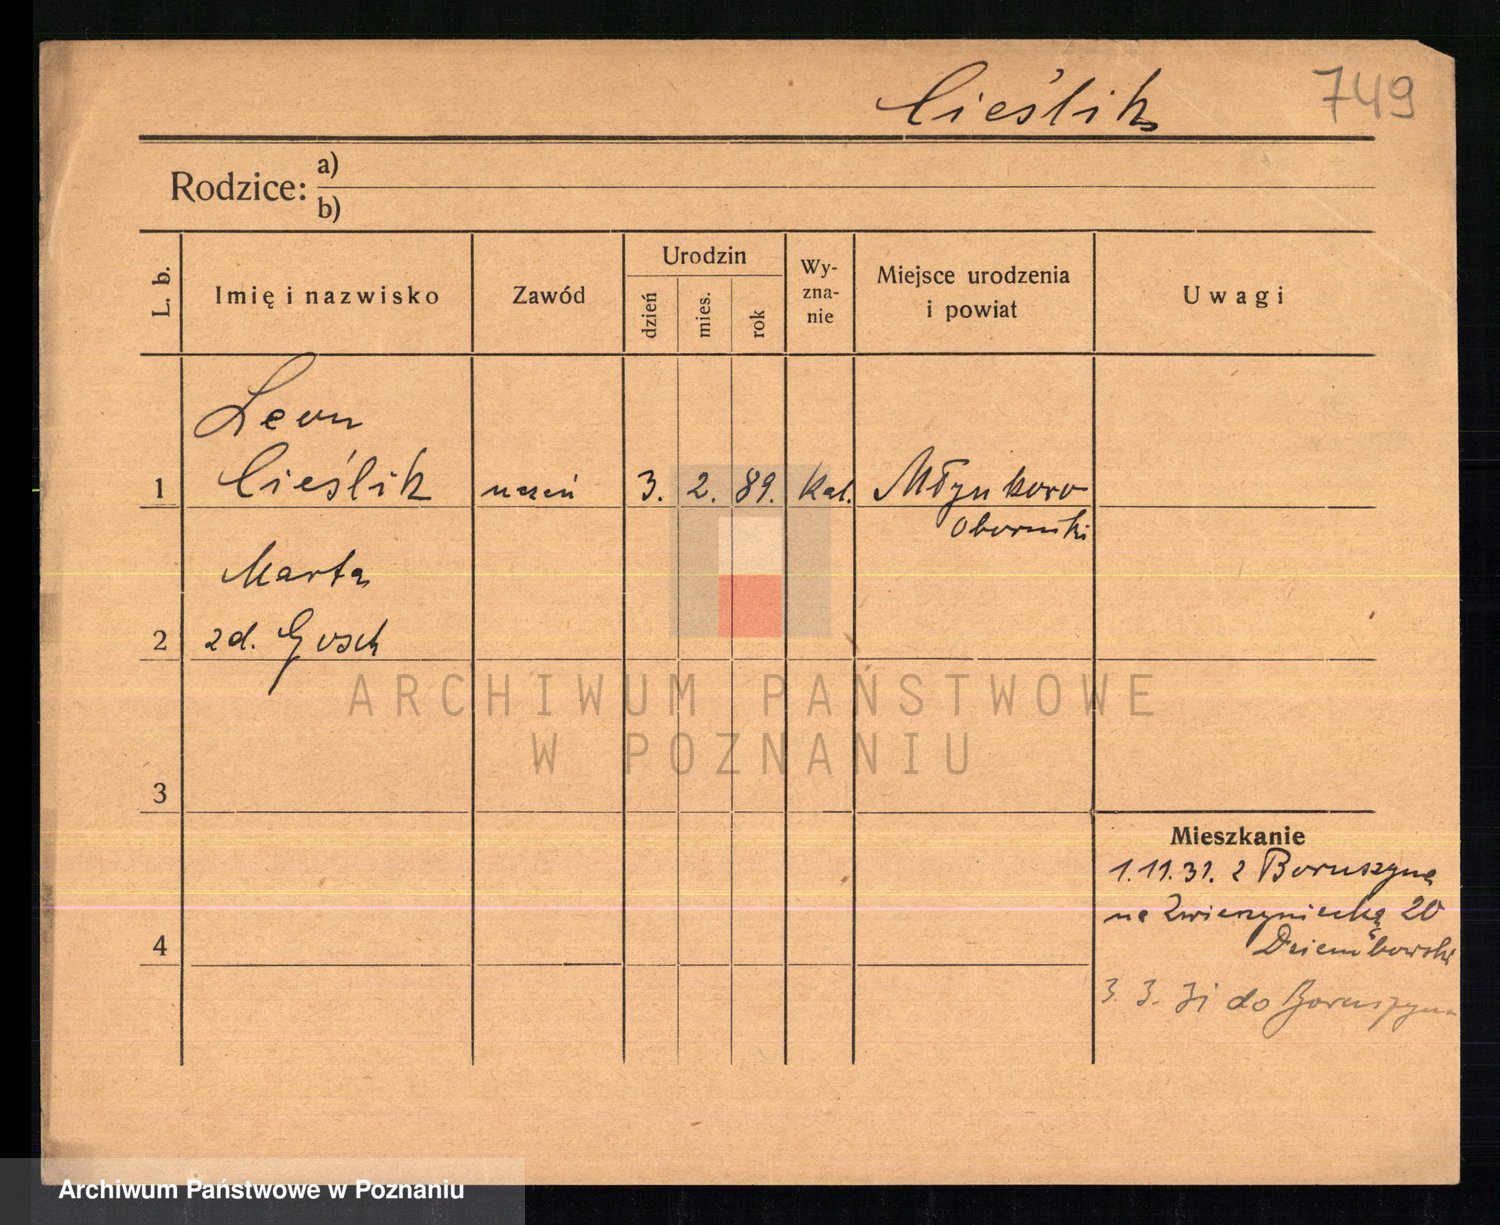 Cieślik 749
Rodzice: a)
b)
L. b.
Imię i nazwisko
Zawód
Urodzin
dzień
mies.
rok
Wy-
zna-
nie
Miejsce urodzenia
i powiat
Uwagi
Leon
1 Cieślik uczeń 3. 2. 89. kat. Młynkowo
Obornicki
Marta
2 zd. Gosch
3
4
Mieszkanie
1.11.31. z Boruszyna
na Zwierzyniecką 20
Dziembowski
3. 3. do Boruszyna
ARCHIWUM PAŃSTWOWE
W POZNANIU
Archiwum Państwowe w Poznaniu